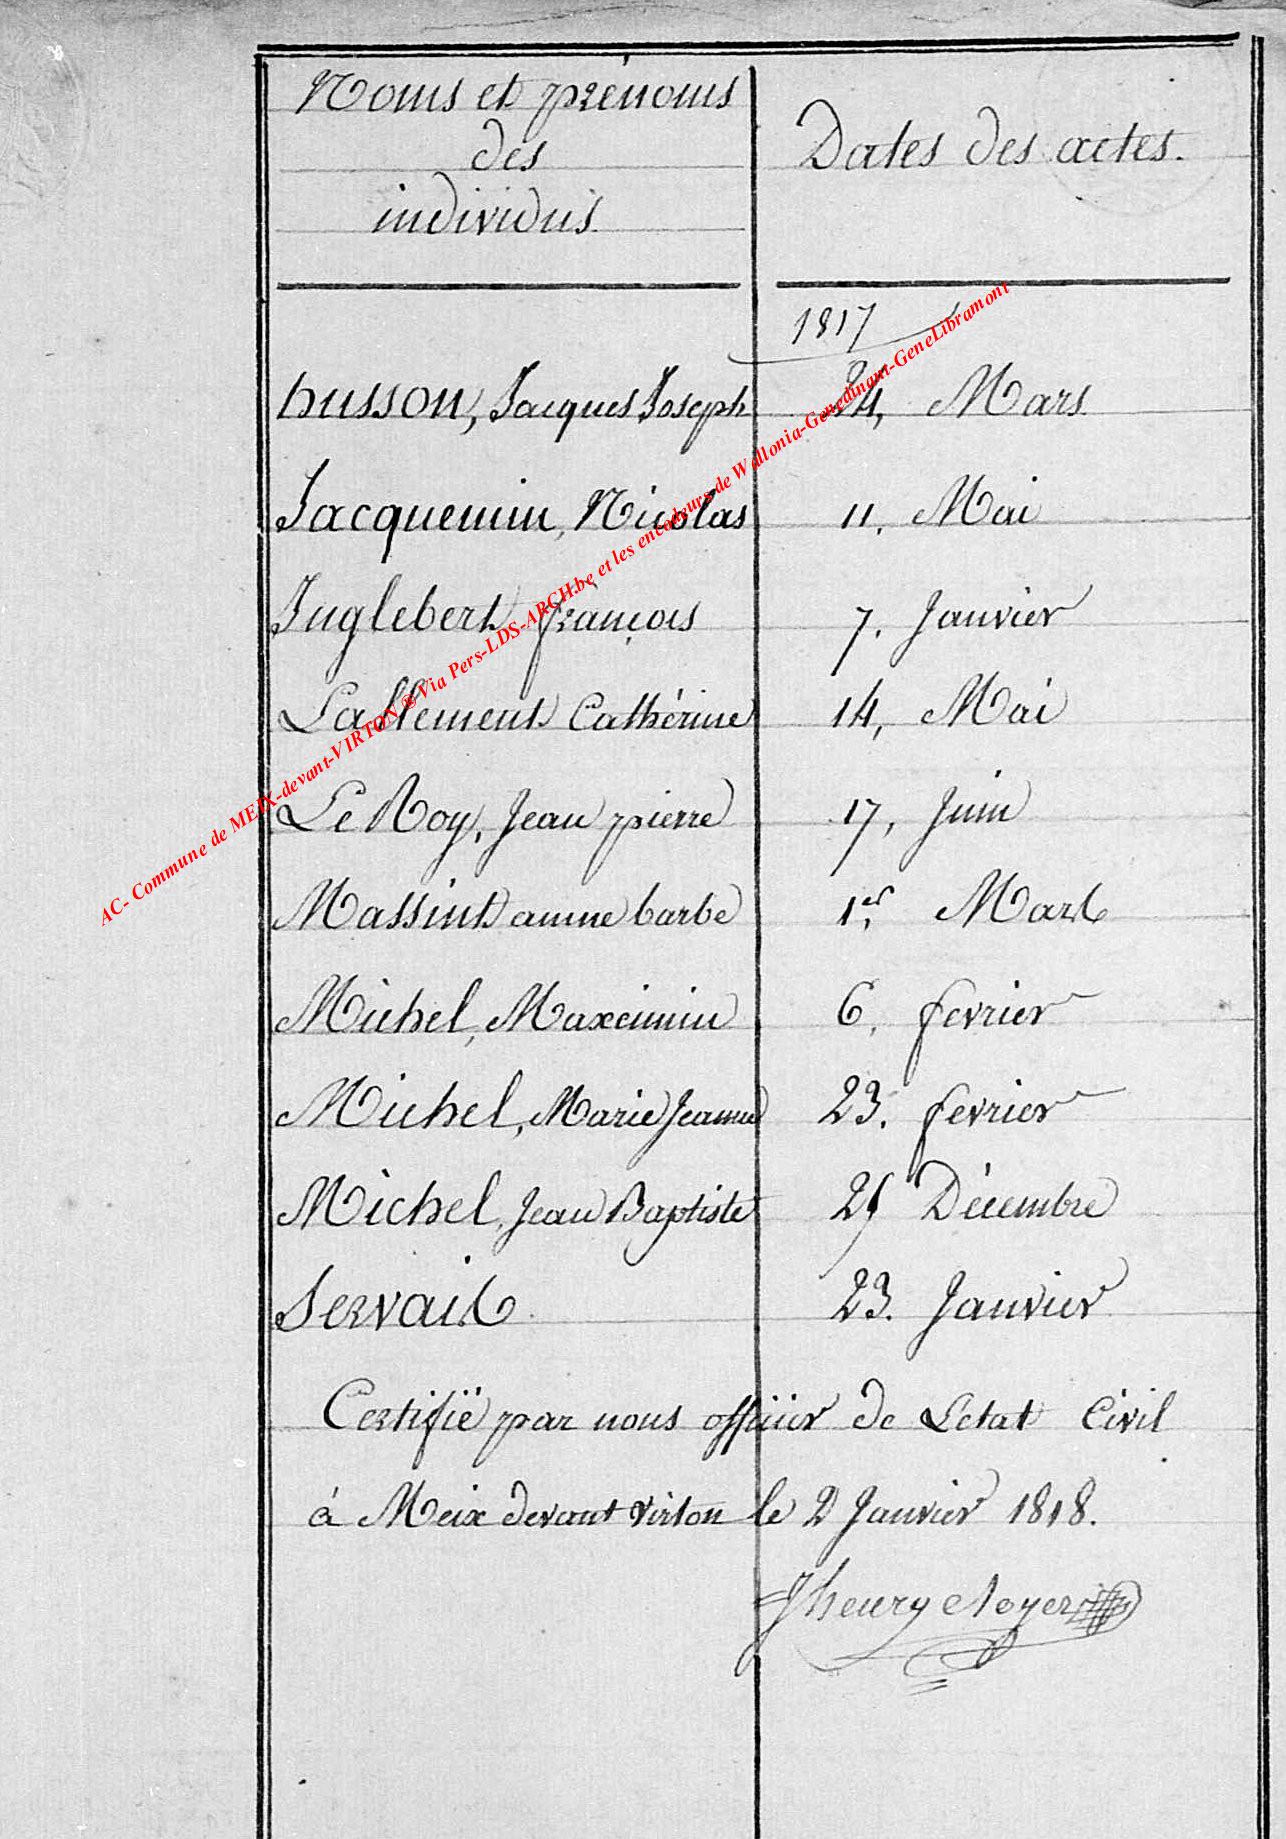 Noms et prénoms
des
individus
Dates des actes.
1817
husson, Jacques Joseph 24, Mars
Jacquemin, Nicolas 11, Mai
Inglebert françois 7. Janvier
Lallement Cathérine 14, Mai
Le Roy, Jean pierre 17, Juin
Massint anne barbe 1er, Mars
Michel, Maximin 6, fevrier
Michel, Marie Jeanne 23. fevrier
Michel, Jean Baptiste 25 Décembre
Servais 23. Janvier
Certifié par nous officier de Letat Civil
à Meix devant virton le 2 Janvier 1818.
AC- Commune de MEIX-devant-VIRTON ® Via Pers-LDS-ARCH.be et les encodeurs de Wallonia-Genedinant-GeneLibramont